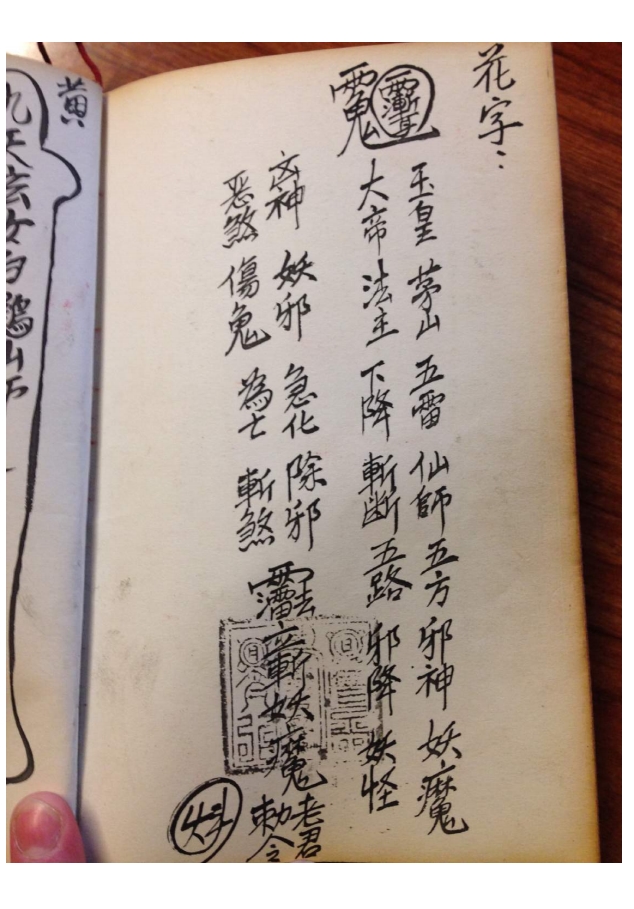 花字：
玉皇 茅山 五雷 仙師 五方 邪神 妖魔
大帝 法主 下降 斬断 五路 邪降 妖怪
凶神 妖邪 急化 除邪
惡煞 傷鬼 為 斬煞
立斬妖魔
老君
勅令
黃
九天玄女白